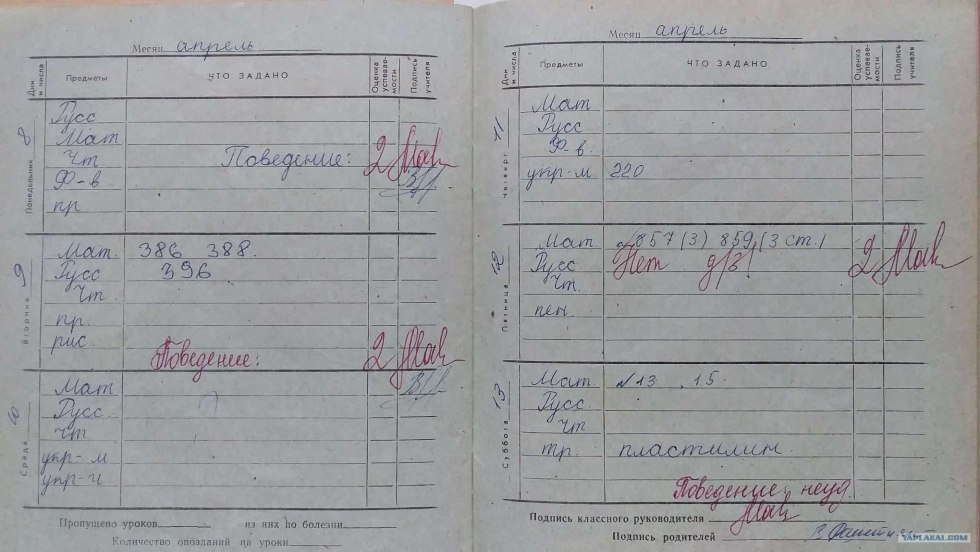 Месяц апрель
Дни и числа Предметы ЧТО ЗАДАНО Оценка успеваемости Подпись учителя
Понедельник 8
Русс
Мат
Чт Поведение: 2
Ф-в
пр
Вторник 9
Мат. 386 388.
Русс 396
Чт
пр.
рис
Поведение: 2
Среда 10
Мат
Русс
Чт
укр-м
укр-ч
Пропущено уроков из них по болезни
Количество опозданий на уроки
Месяц апрель
Дни и числа Предметы ЧТО ЗАДАНО Оценка успеваемости Подпись учителя
Четверг 11
Мат
Русс
Ф-в.
укр-м 220
Пятница 12
Мат. 857 (3) 859 (3 ст.)
Русс Нет д/з! 2
Чт.
пен.
Суббота 13
Мат №13 .15.
Русс.
Чт
тр. пластилин
Поведение: неуд.
Подпись классного руководителя
Подпись родителей
YAPLAKAL.COM